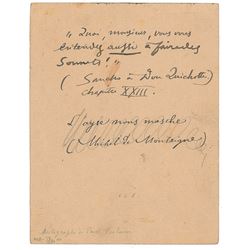 „ Quoi, monsieur, vous vous
entendez aussi à faire des
Sonnets ! "
( Sancho à Don Quichotte
chapitre XXIII.
L'ayse nous masche
(Michel de Montaigne)
Autographe de Paul Verlaine